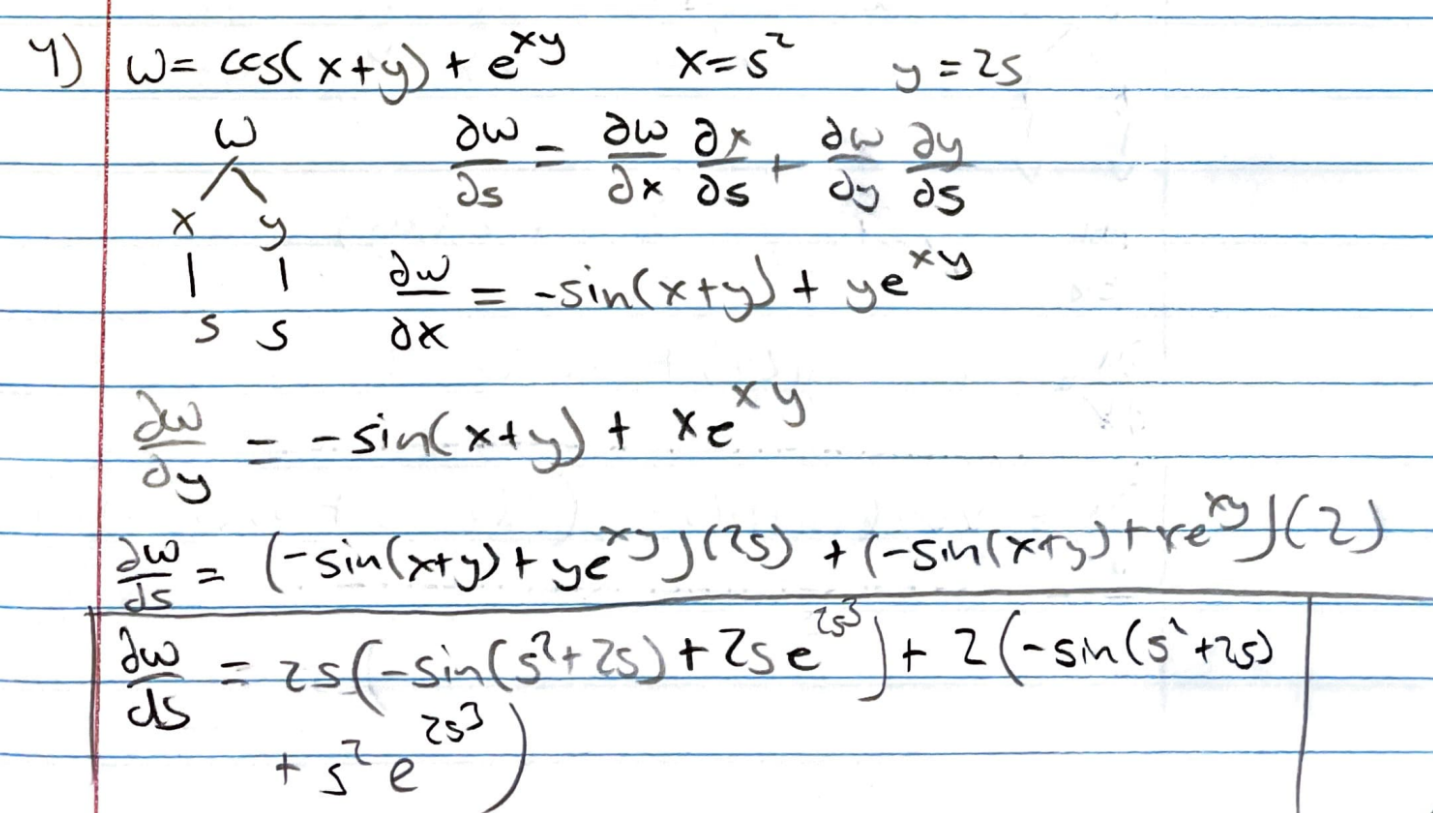 4) w = cos(x+y) + e^xy x=s² y=2s
w
∂w/∂s = ∂w/∂x ∂x/∂s + ∂w/∂y ∂y/∂s
x y
s s
∂w/∂x = -sin(x+y) + ye^xy
∂w/∂y = -sin(x+y) + xe^xy
∂w/ds = (-sin(x+y) + ye^xy)(2s) + (-sin(x+y) + xe^xy)(2)
∂w/ds = 2s(-sin(s²+2s) + 2se^2s³) + 2(-sin(s²+2s)
+ s²e^2s³)